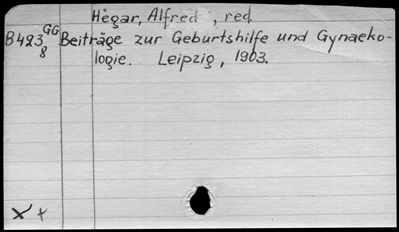 Hegar, Alfred , red.
B423 GG 8 Beiträge zur Geburtshilfe und Gynaeko-
logie. Leipzig, 1903.